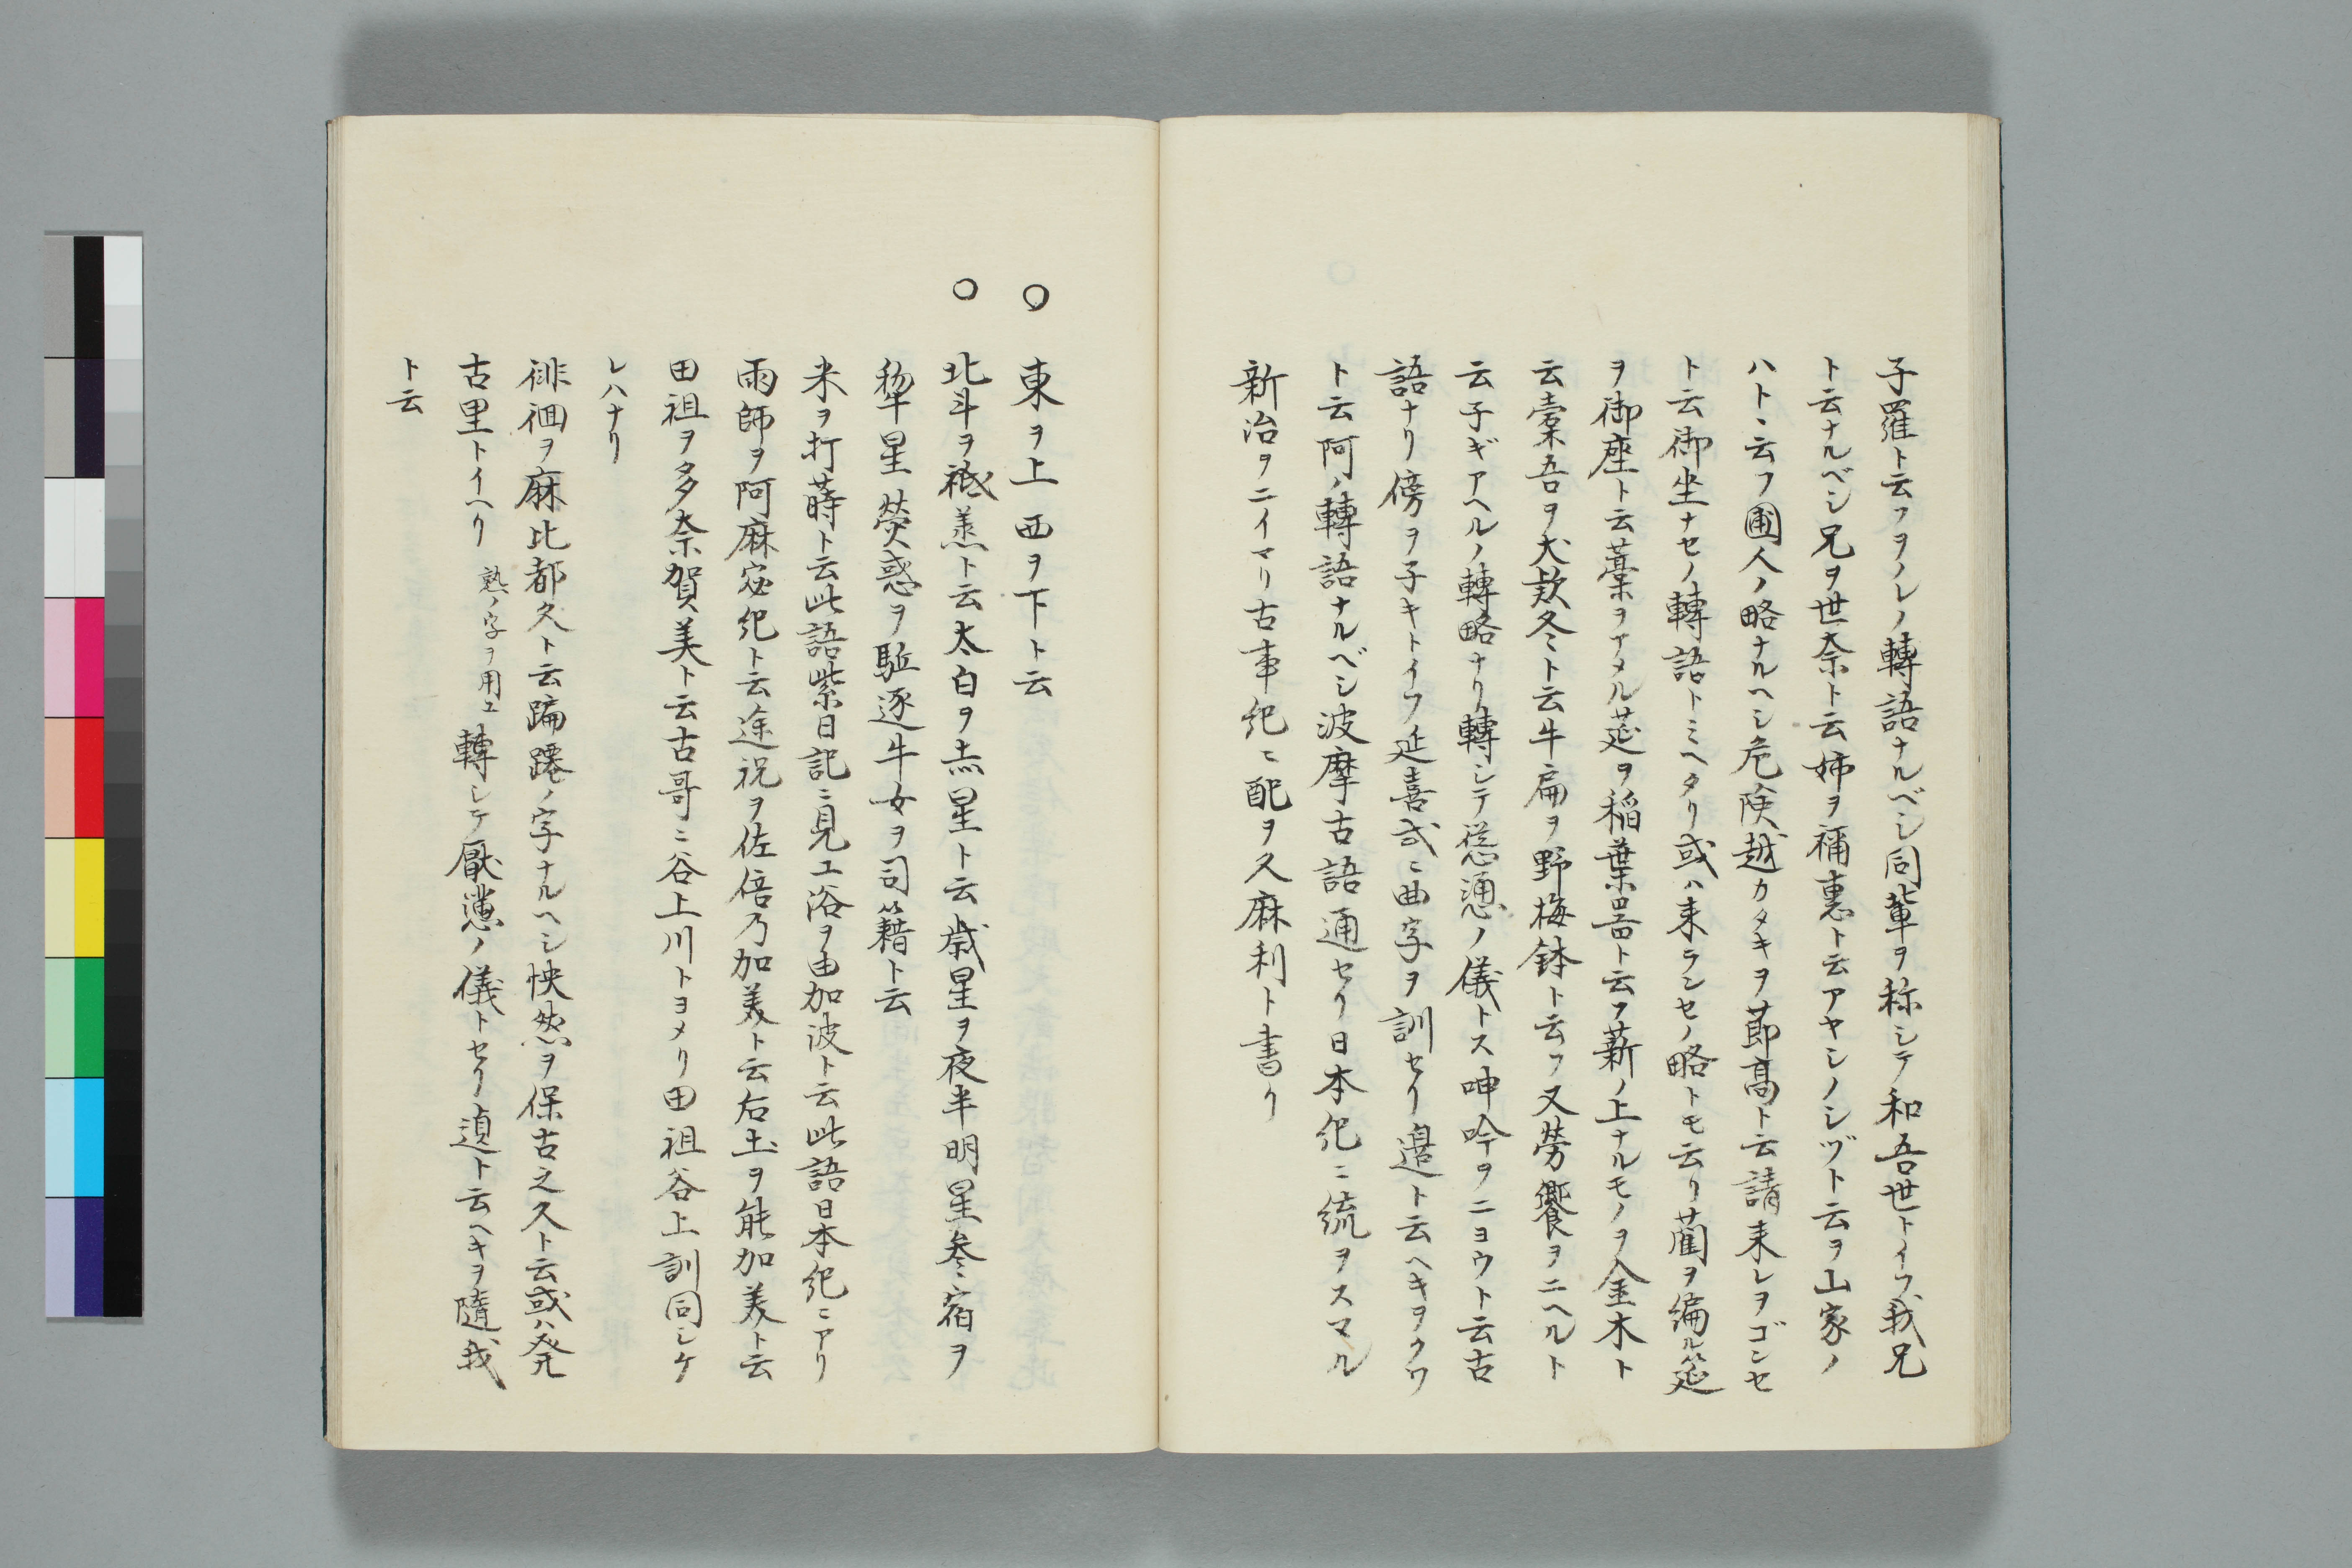 子羅ト云フヲノレノ轉語ナルベシ同輩ヲ称シテ和吾世トイフ我兄
ト云ナルベシ兄ヲ世奈ト云姉ヲ禰恵ト云アヤシノシヅト云ヲ山家ノ
ハトヽ云フ圃人ノ略ナルヘシ危険越カタキヲ莭高ト云請来レヲゴンセ
ト云御坐ナセノ轉語トミヘタリ或ハ来ランセノ略トモ云リ藺ヲ編ル筵
ヲ御座ト云藁ヲアメル莚ヲ稲葉呂ト云フ薪ノ上ナルモノヲ金木ト
云橐吾ヲ犬欵冬ト云牛扁ヲ野梅鉢ト云フ又勞饗ヲニヘルト
云子ギアヘルノ轉略ナリ轉シテ慫慂ノ儀トス呻吟ヲニヨウト云古
語ナリ傍ヲ子キトイフ延喜式ニ曲字ヲ訓セリ邉ト云ヘキヲクワ
ト云阿ノ轉語ナルベシ波摩古語通セリ日本紀ニ統ヲスマル
新治ヲニイマリ古事紀ニ配ヲ久麻利ト書リ
○東ヲ上西ヲ下ト云
○北斗ヲ祗羕ト云太白ヲ赤星ト云歳星ヲ夜半明星参宿ヲ
犂星熒惑ヲ駈逐牛女ヲ司籍ト云
米ヲ打蒔ト云此語紫日記ニ見エ浴ヲ由加波ト云此語日本紀ニアリ
雨師ヲ阿麻宓紀ト云途祝ヲ佐倍乃加美ト云右土ヲ能加美ト云
田祖ヲ多奈賀美ト云古哥ニ谷上川トヨメリ田祖谷上訓同シケ
レハナリ
徘徊ヲ麻比都久ト云蹁躚ノ字ナルヘシ怏然ヲ保古之久ト云或ハ発
古里トイヘリ熟ノ字ヲ用ユ轉シテ厭懣ノ儀トセリ適ト云ヘキヲ隨我
ト云